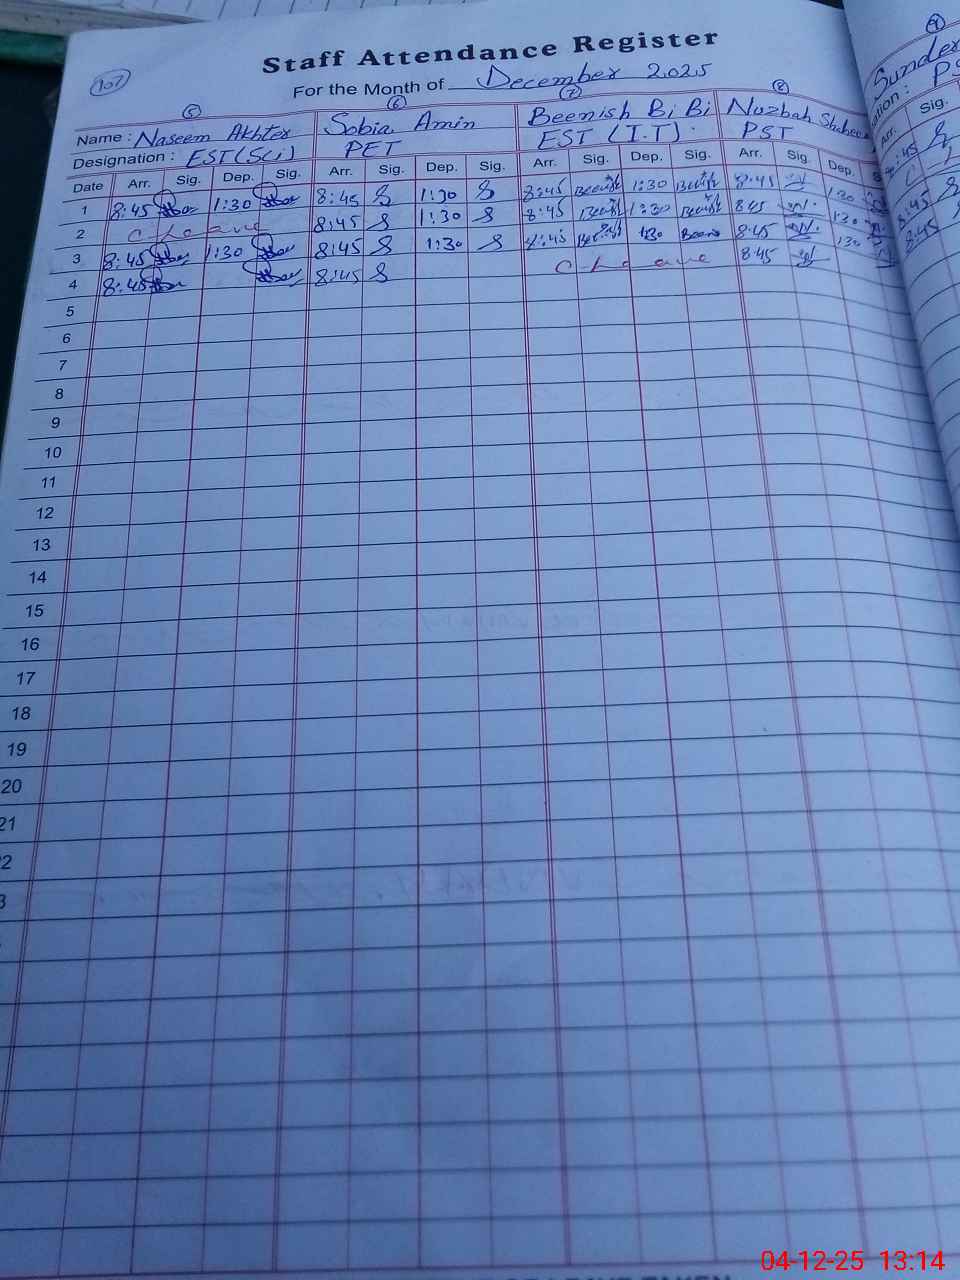 107
Staff Attendance Register
For the Month of December 2025
5 6 7 8 9
Name : Naseem Akhter Sobia Amin Beenish Bi Bi Nuzbah Shaheen Sunder
Designation : EST (Sci) PET EST (I.T) PST
Date Arr. Sig. Dep. Sig. Arr. Sig. Dep. Sig. Arr. Sig. Dep. Sig. Arr. Sig. Dep. Arr. Sig.
1 8:45 1:30 8:45 1:30 8:45 Beenish 1:30 Beenish 8:45 1:30
2 C-Leave 8:45 1:30 8:45 Beenish 1:30 Beenish 8:45 1:30
3 8:45 1:30 8:45 1:30 8:45 Beenish 1:30 8:45 1:30 8:45
4 8:45 8:45 C-Leave 8:45 8:45
5
6
7
8
9
10
11
12
13
14
15
16
17
18
19
20
21
04-12-25 13:14